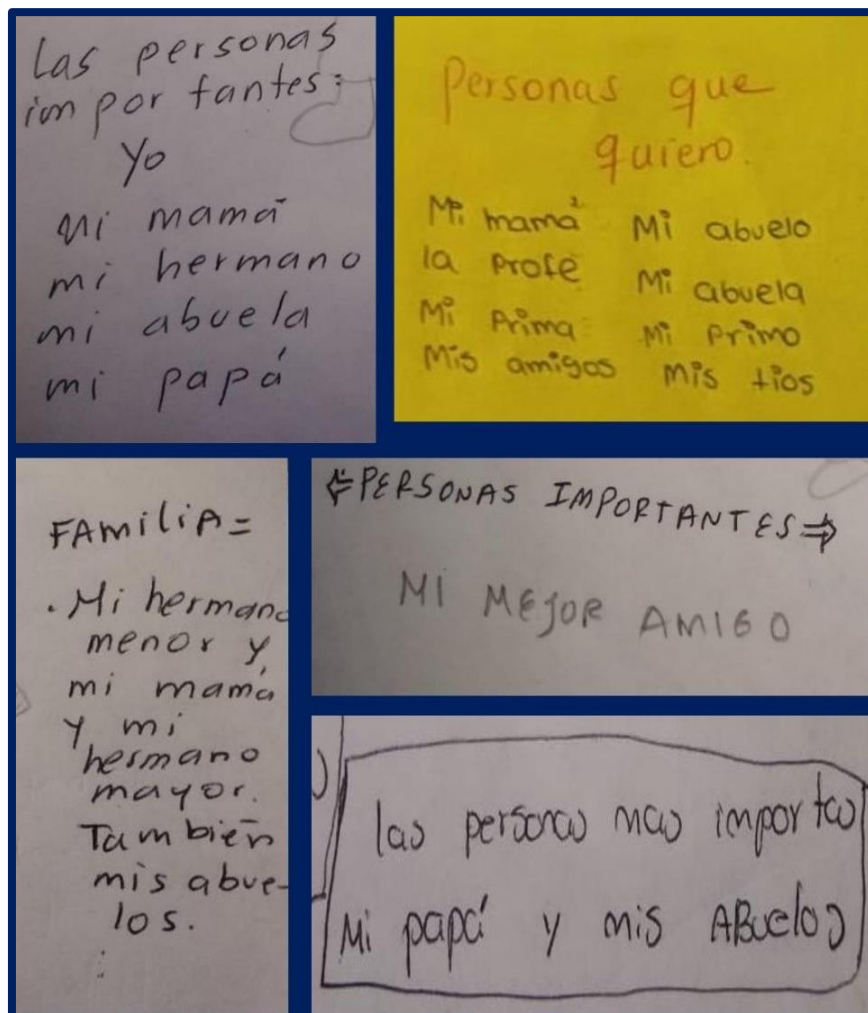 Las personas
im por tantes:
Yo
mi mamá
mi hermano
mi abuela
mi papá
Personas que
quiero.
Mi mamá Mi abuelo
la Profe Mi abuela
Mi Prima Mi Primo
Mis amigos Mis tios
FAMiliA=
. Mi hermano
menor y
mi mamá
y mi
hermano
mayor.
También
mis abue-
los.
⇐PERSONAS IMPORTANTES⇒
MI MEJOR AMIGO
las personas mas importas
Mi papá y mis ABuelos